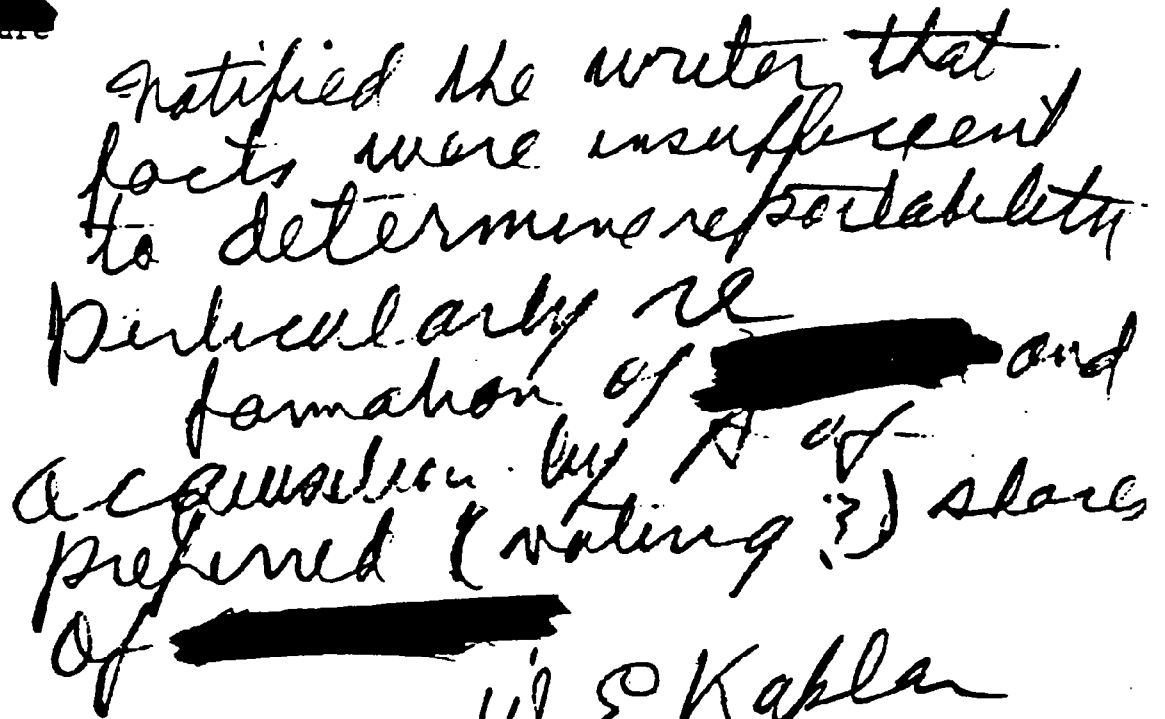 notified the writer that
facts were insufficient
to determine reportability
particularly re
formation of and
acquisition by A of
preferred (voting?) shares
of
W E Kaplan